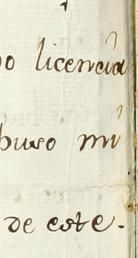 o licencia
puso mi
de este.